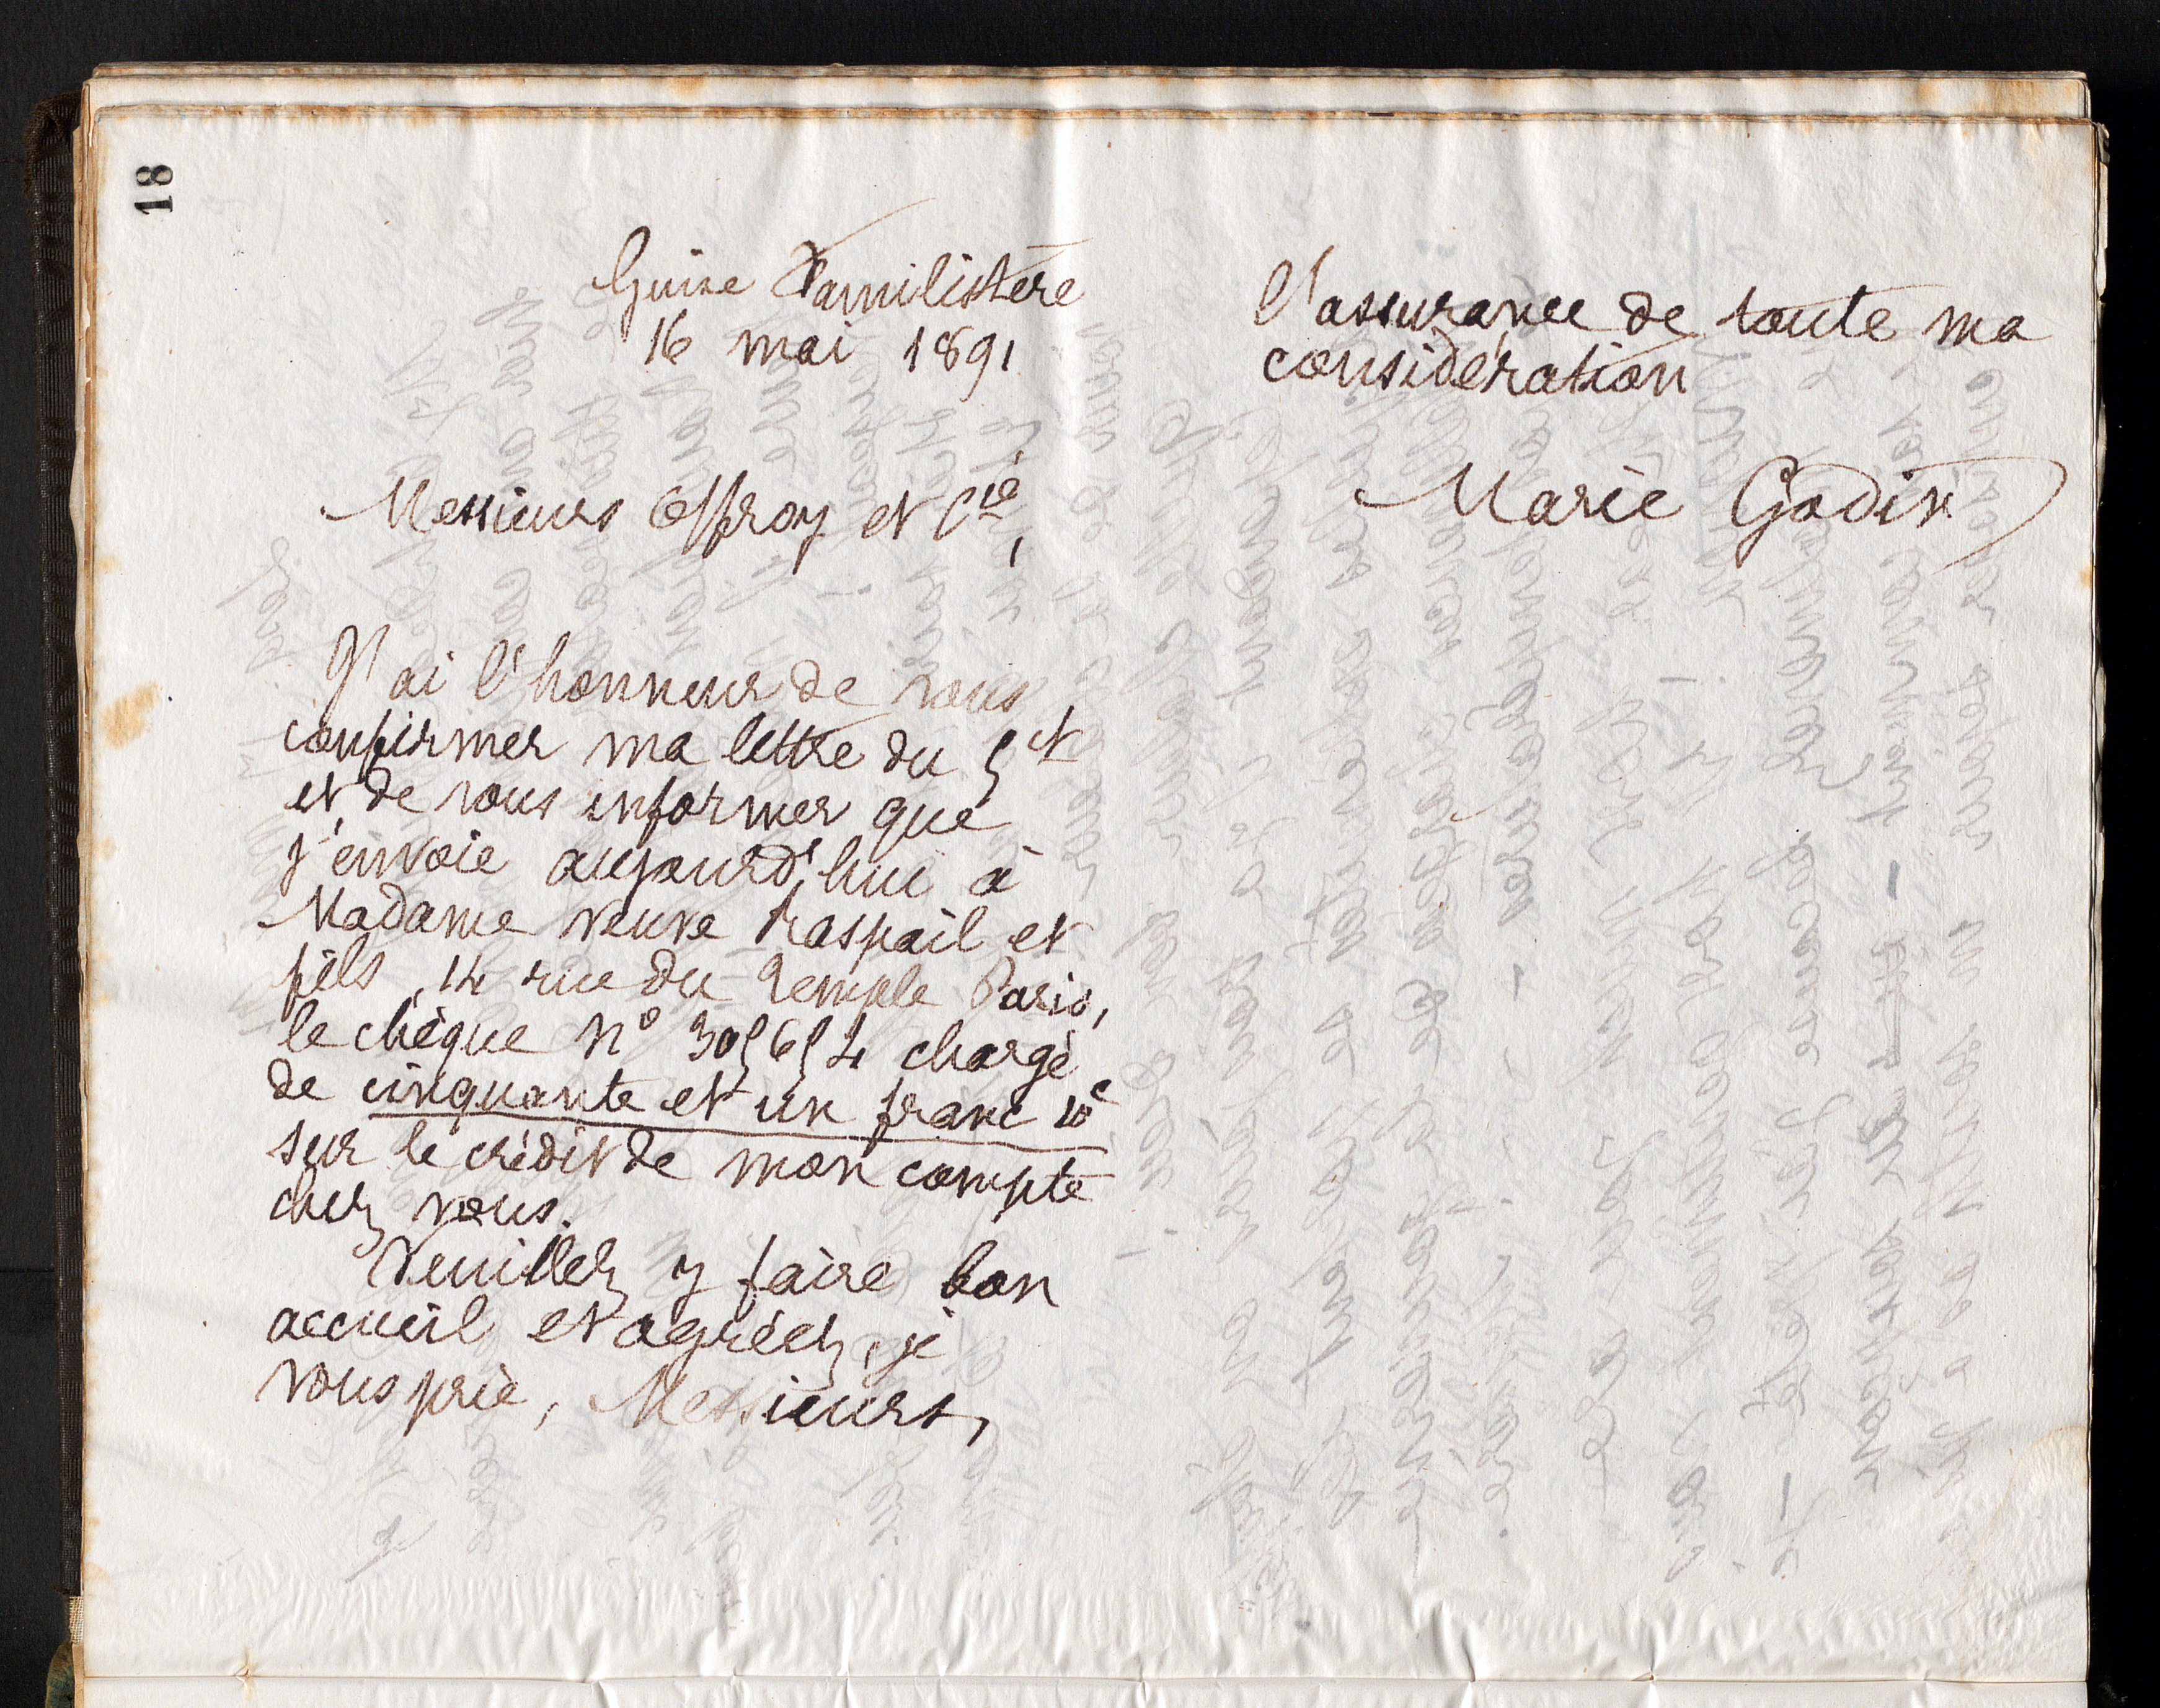 18
Guise Familistère
16 mai 1891
Messieurs Offroy et Cie,
J'ai l'honneur de vous
confirmer ma lettre du 5 ct
et de vous informer que
j'envoie aujourd'hui à
Madame veuve Raspail et
fils, 14 rue du Temple Paris,
le chèque n° 305654 chargé
de cinquante et un franc 10c
sur le crédit de mon compte
chez vous.
Veuillez y faire bon
accueil et agréez, je
vous prie, Messieurs,
l'assurance de toute ma
considération
Marie Godin